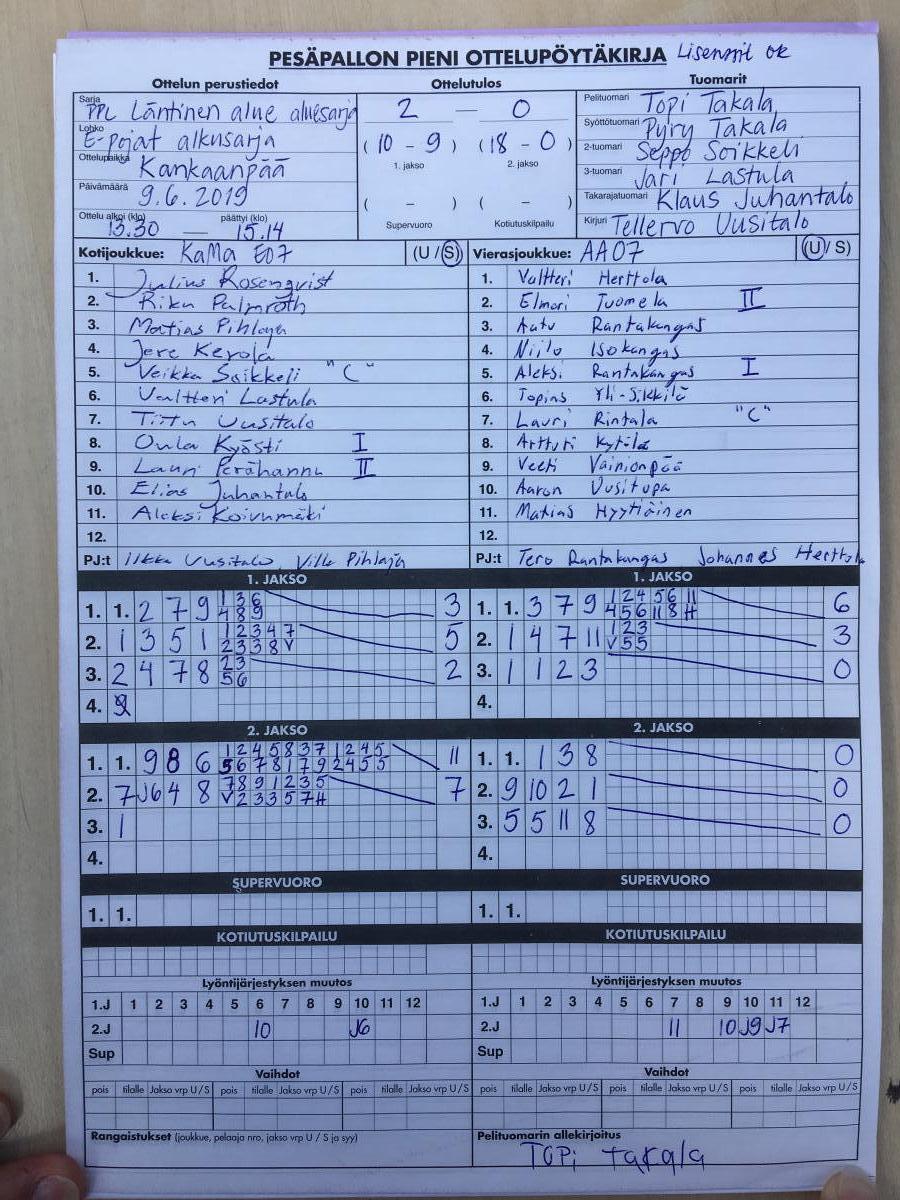 PESÄPALLON PIENI OTTELUPÖYTÄKIRJA Lisenssit ok
Ottelun perustiedot Ottelutulos Tuomarit
Sarja PPL Läntinen alue aluesarja 2 — 0 Pelituomari Topi Takala
Lohko E-pojat alkusarja (10 - 9) (18 - 0) Syöttötuomari Pyry Takala
1. jakso 2. jakso 2-tuomari Seppo Soikkeli
Ottelupaikka Kankaanpää 3-tuomari Jari Lastula
Päivämäärä 9.6.2019 ( - ) ( - ) Takarajatuomari Klaus Juhantalo
Ottelu alkoi (klo) 13.30 — päättyi (klo) 15.14 Supervuoro Kotiutuskilpailu Kirjuri Tellervo Uusitalo
Kotijoukkue: KaMa E07 (U / S) Vierasjoukkue: AA07 (U / S)
1. Julius Rosenqvist 1. Valtteri Herttola
2. Riku Palmroth 2. Elmeri Tuomela II
3. Matias Pihlaja 3. Aatu Rantakangas
4. Jere Kerola 4. Niilo Isokangas
5. Veikka Soikkeli "C" 5. Aleksi Rantakangas I
6. Valtteri Lastula 6. Topias Yli-Sikkilä
7. Tiitu Uusitalo 7. Lauri Rintala "C"
8. Oula Kyösti I 8. Arttuti Kytölä
9. Lauri Perähannu II 9. Veeti Vainionpää
10. Elias Juhantalo 10. Aaron Uusitupa
11. Aleksi Koivumäki 11. Matias Hyytiäinen
12. 12.
PJ:t Ilkka Uusitalo, Ville Pihlaja PJ:t Tero Rantakangas Johannes Herttola
1. JAKSO 1. JAKSO
1. 1. 2 7 9 1 3 6 3 1. 1. 3 7 9 1 2 4 5 6 11 6
4 8 9 4 5 6 11 8 H
2. 1 3 5 1 1 2 3 4 7 5 2. 1 4 7 11 1 2 3 3
2 3 3 8 V V 5 5
3. 2 4 7 8 2 3 2 3. 1 1 2 3 0
5 6
4. 9 4.
2. JAKSO 2. JAKSO
1. 1. 9 8 6 1 2 4 5 8 3 7 1 2 4 5 11 1. 1. 1 3 8 0
5 6 7 8 1 7 9 2 4 5 5
2. 7 J6 4 8 7 8 9 1 2 3 5 7 2. 9 10 2 1 0
V 2 3 3 5 7 H
3. 1 3. 5 5 11 8 0
4. 4.
SUPERVUORO SUPERVUORO
1. 1. 1. 1.
KOTIUTUSKILPAILU KOTIUTUSKILPAILU
Lyöntijärjestyksen muutos Lyöntijärjestyksen muutos
1.J 1 2 3 4 5 6 7 8 9 10 11 12 1.J 1 2 3 4 5 6 7 8 9 10 11 12
2.J 10 J6 2.J 11 10 J9 J7
Sup Sup
Vaihdot Vaihdot
pois tilalle Jakso vrp U / S pois tilalle Jakso vrp U / S pois tilalle Jakso vrp U / S pois tilalle Jakso vrp U / S pois tilalle Jakso vrp U / S pois tilalle Jakso vrp U / S
Rangaistukset (joukkue, pelaaja nro, jakso vrp U / S ja syy) Pelituomarin allekirjoitus
TOPi takala